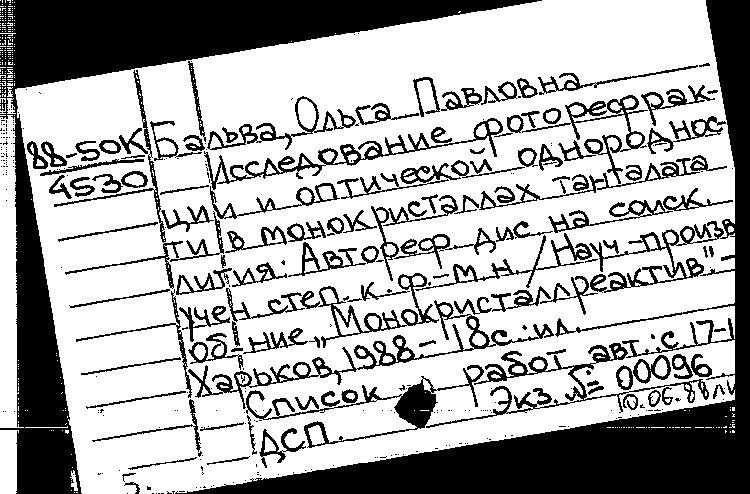 88-50К
4530
Бальва, Ольга Павловна.
Исследование фоторефрак-
ции и оптической однороднос-
ти в монокристаллах танталата
лития: Автореф. дис. на соиск.
учен. степ. к. ф.-м. н. / Науч.-произв
об-ние „Монокристаллреактив". -
Харьков, 1988. - 18 с.: ил.
Список работ авт.: с. 17-1
Экз. № 00096
ДСП.
10.06.88
5.